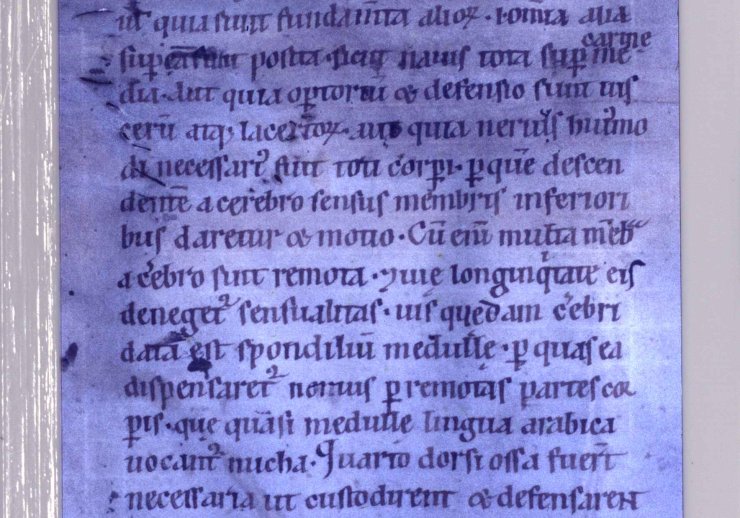 ut quia sunt fundam̄ta alioꝝ · & om̄ia alia
suꝑ ea sunt posita · sicut nauis tota suꝑ
carine
dia · aut quia oꝑtoriū & defensio sunt uis
cerū atq; lacertoꝝ · quia neruis
di necessari sunt toti corꝑi · ꝑ quē descen
dente a cerebro sensus membris inferiori
bus daretur & motio · Cū eni̅ multa m̄eb
a cerebro sunt remota · longinq̇tate eis
deneget᷑ sensualitas · uis quędam cerebri
data est spondiliū medullę · ꝑ quas ea
dispensaret᷑ neruis ꝑ remotas partes cor
ꝑis · quę quasi medullę lingua arabica
uocant᷑ nucha · Quarto dorsi ossa fuer̄t
necessaria ut custodirent & defensarent